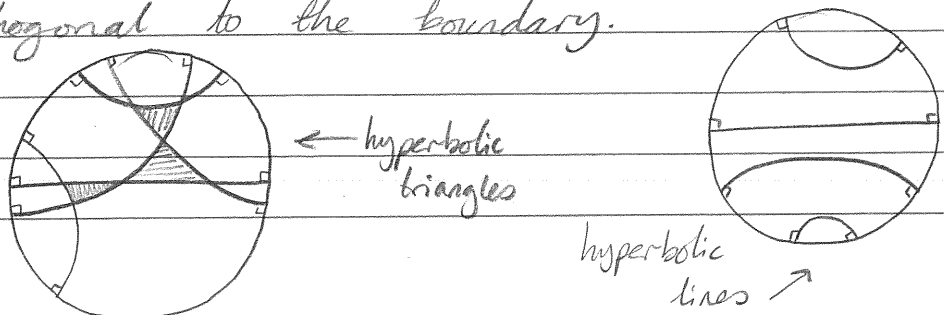 to the boundary.
hyperbolic
triangles
hyperbolic
lines